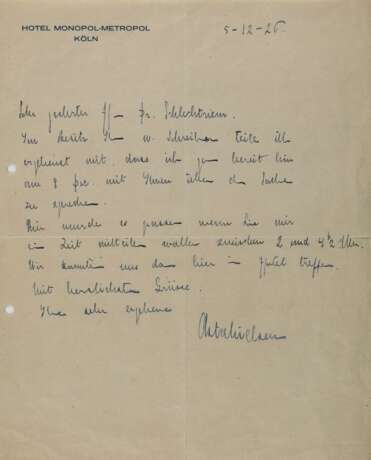 HOTEL MONOPOL-METROPOL
KÖLN
5-12-26
Sehr geehrter Schlechtriem.
Im w. Schreiben teile ich
ergebenst mit, dass ich gern bereit bin
am 8 mit Ihnen über die Sache
zu sprechen.
wurde es passen wenn Sie mir
ein Zeit mitteilen wollen zwischen 2 und 4½ Uhr.
Wir konnten uns dan hier in Hotel treffen.
Mit herzlichsten Grüsse.
Ihre sehr ergebene
Asta Nielsen